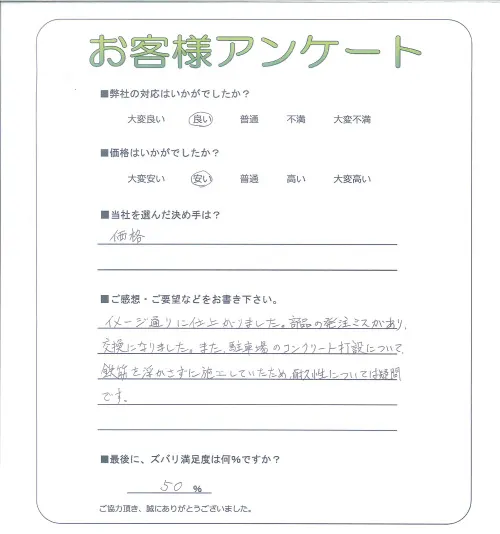 お客様アンケート
■弊社の対応はいかがでしたか？
大変良い 良い 普通 不満 大変不満
■価格はいかがでしたか？
大変安い 安い 普通 高い 大変高い
■当社を選んだ決め手は？
価格
■ご感想・ご要望などをお書き下さい。
イメージ通りに仕上がりました。部品の発注ミスがあり、
交換になりました。また、駐車場のコンクリート打設について、
鉄筋を浮かさずに施工していたため、耐久性については疑問
です。
■最後に、ズバリ満足度は何%ですか？
50 %
ご協力頂き、誠にありがとうございました。